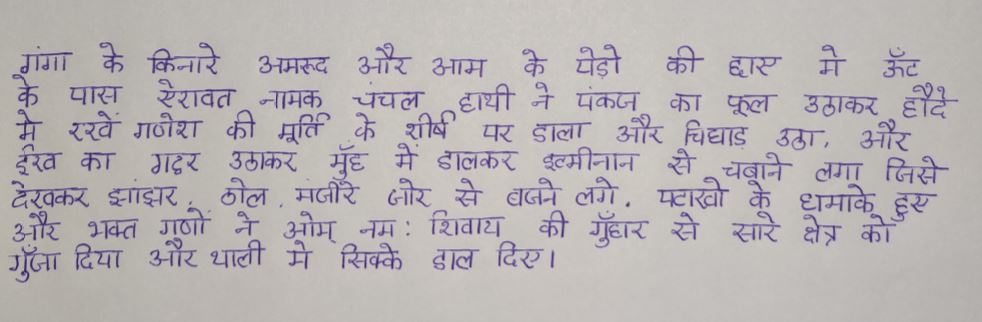 गंगा के किनारे अमरूद और आम के पेड़ो की छास मे ऊँट
के पास ऐरावत नामक चंचल हाथी ने पंकज का फूल उठाकर हौदे
मे रखें गणेश की मूर्ति के शीर्ष पर डाला और चिघाड़ उठा, और
ईख का गट्ठर उठाकर मुँह में डालकर इत्मीनान से चबाने लगा जिसे
देखकर झांझर, ढोल, मंजीरे जोर से बजने लगे, पटाखो के धमाके हुए
और भक्त गणों ने ओम् नम: शिवाय की गुँहार से सारे क्षेत्र को
गुँजा दिया और थाली मे सिक्के डाल दिए।